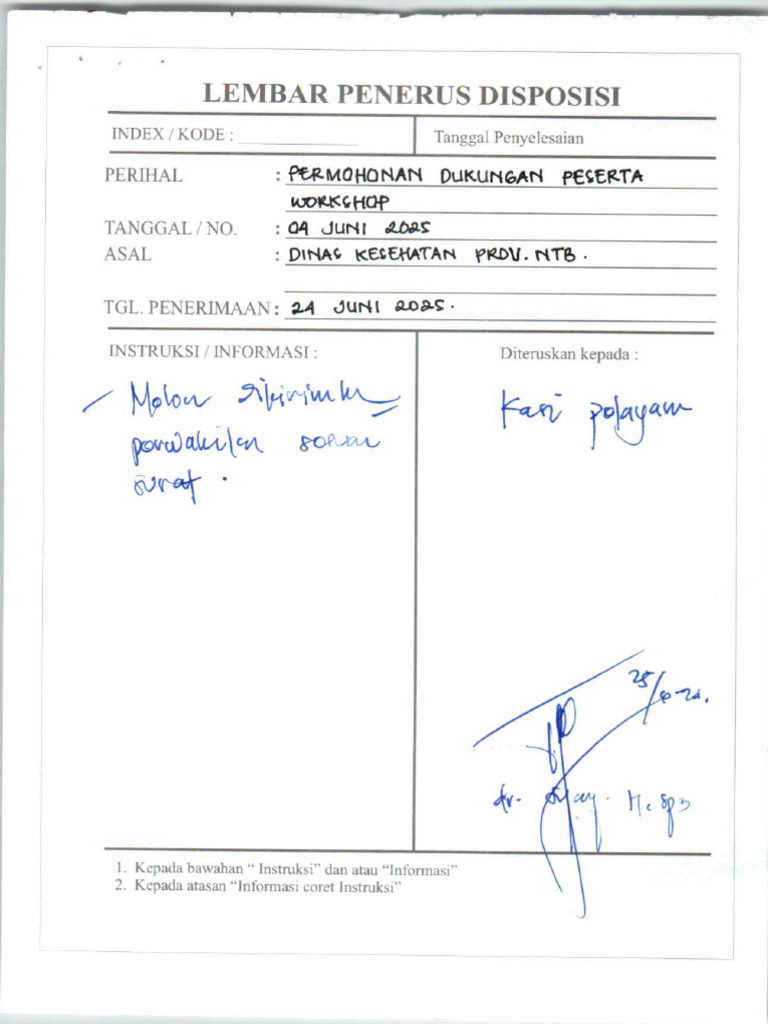 LEMBAR PENERUS DISPOSISI
INDEX / KODE :
Tanggal Penyelesaian
PERIHAL : PERMOHONAN DUKUNGAN PESERTA
WORKSHOP
TANGGAL / NO. : 04 JUNI 2025
ASAL : DINAS KESEHATAN PROV. NTB.
TGL. PENERIMAAN : 24 JUNI 2025.
INSTRUKSI / INFORMASI :
Diteruskan kepada :
- Mohon dikirimkan
perwakilan sesuai
surat.
Kasi pelayanan
25/6-
dr.
1. Kepada bawahan “ Instruksi” dan atau “Informasi”
2. Kepada atasan “Informasi coret Instruksi”